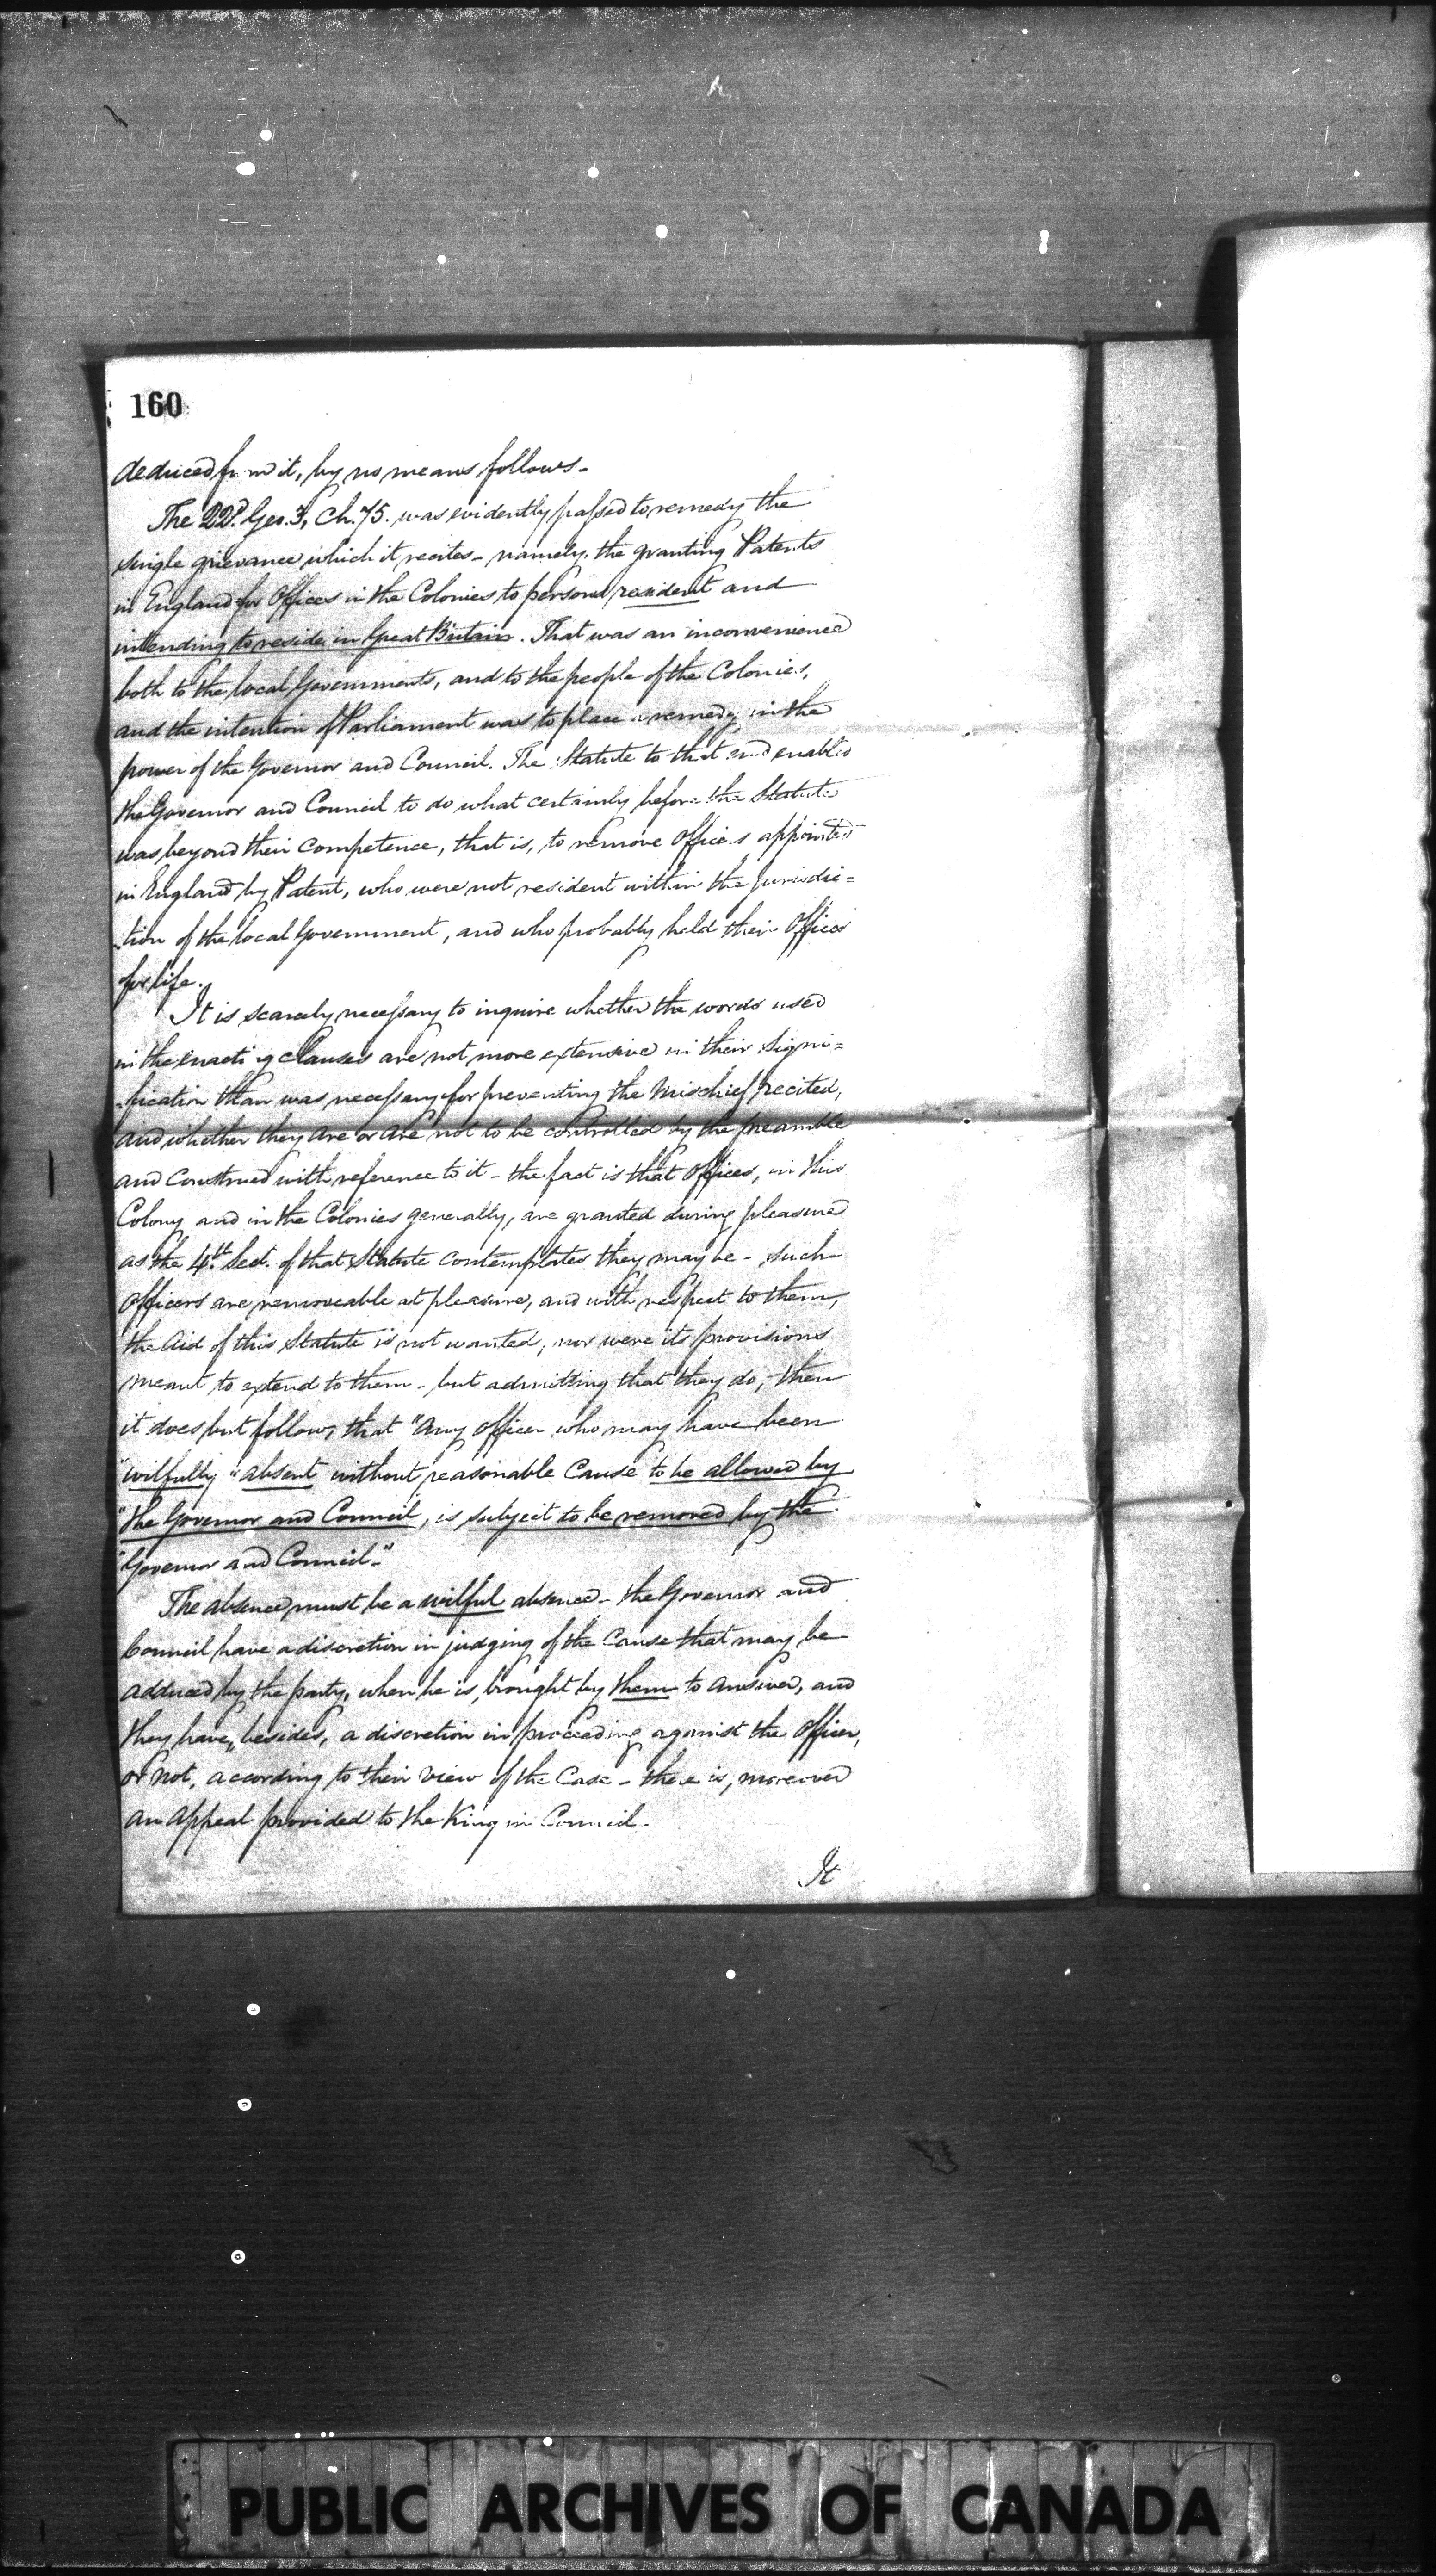 160
deduced from it, by no means follows -
The 22d. Geo. 3, Ch. 75. was evidently passed to remedy the
single grievance which it recites - namely, the granting Patents
in England for Offices in the Colonies to persons resident and
intending to reside in Great Britain. That was an inconvenience
both to the local Governments, and to the people of the Colonies,
and the intention of Parliament was to place a remedy in the
power of the Governor and Council. The Statute to that end enables
the Governor and Council to do what certainly before the Statute
was beyond their competence, that is, to remove Officers appointed
in England by Patent, who were not resident within the jurisdic=
tion of the local Government, and who probably held their Offices
for life.
It is scarcely necessary to inquire whether the words used
in the enacting clauses are not more extensive in their signi=
fication than was necessary for preventing the mischief recited,
and whether they are or are not to be controlled by the preamble
and construed with reference to it - the fact is that Offices, in this
Colony and in the Colonies generally, are granted during pleasure
as the 4th. Sect. of that Statute contemplates they may be - such
Officers are removeable at pleasure, and with respect to them,
the Aid of this Statute is not wanted, nor were its provisions
meant to extend to them - but admitting that they do, then
it does but follow, that "Any Officer who may have been
"wilfully "absent without reasonable Cause to be allowed by
"the Governor and Council, is subject to be removed by the
"Governor and Council."
The absence must be a wilful absence - the Governor and
Council have a discretion in judging of the Cause that may be
adduced by the party, when he is brought by them to answer, and
they have, besides, a discretion in proceeding against the Officer,
or not, according to their view of the Case - there is, moreover
an Appeal provided to the King in Council -
It
PUBLIC ARCHIVES OF CANADA